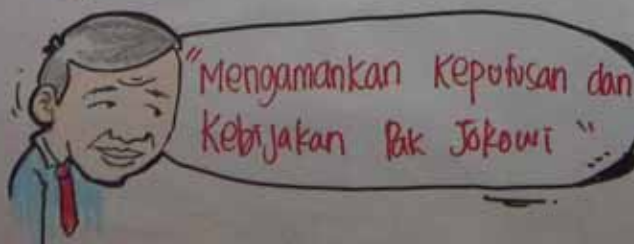 "Mengamankan Keputusan dan
Kebijakan Pak Jokowi "...